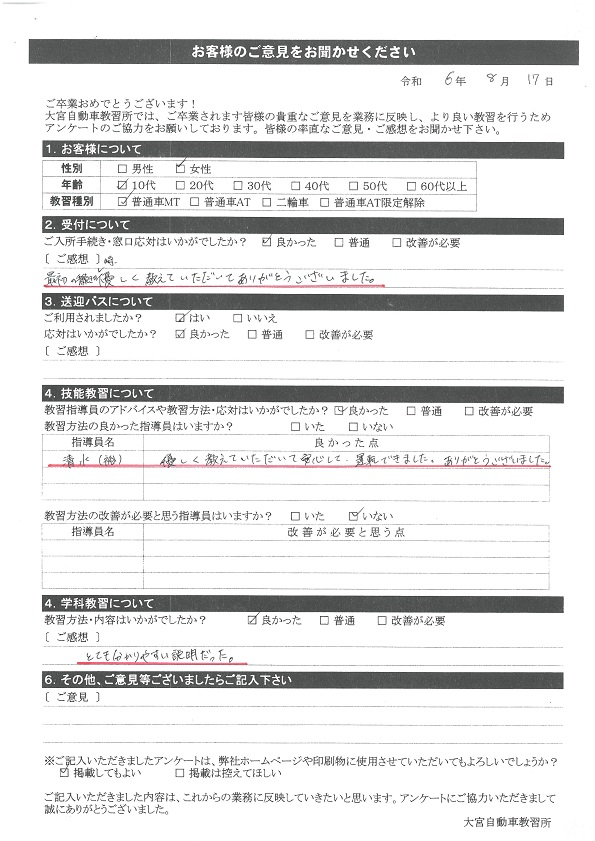 お客様のご意見をお聞かせください
令和 6年 8月 17日
ご卒業おめでとうございます！
大宮自動車教習所では、ご卒業されます皆様の貴重なご意見を業務に反映し、より良い教習を行うため
アンケートのご協力をお願いしております。皆様の率直なご意見・ご感想をお聞かせ下さい。
1. お客様について
性別 □ 男性 ☑ 女性
年齢 ☑ 10代 □ 20代 □ 30代 □ 40代 □ 50代 □ 60代以上
教習種別 ☑ 普通車MT □ 普通車AT □ 二輪車 □ 普通車AT限定解除
2. 受付について
ご入所手続き・窓口応対はいかがでしたか？ ☑ 良かった □ 普通 □ 改善が必要
〔 ご感想 〕 時
最初の 優しく教えていただいてありがとうございました。
3. 送迎バスについて
ご利用されましたか？ ☑ はい □ いいえ
応対はいかがでしたか？ ☑ 良かった □ 普通 □ 改善が必要
〔 ご感想 〕
4. 技能教習について
教習指導員のアドバイスや教習方法・応対はいかがでしたか？ ☑ 良かった □ 普通 □ 改善が必要
教習方法の良かった指導員はいますか？ □ いた □ いない
指導員名 良かった点
清水 優しく教えていただいて安心して運転できました。ありがとうございました。
教習方法の改善が必要と思う指導員はいますか？ □ いた ☑ いない
指導員名 改善が必要と思う点
4. 学科教習について
教習方法・内容はいかがでしたか？ ☑ 良かった □ 普通 □ 改善が必要
〔 ご感想 〕
とても分かりやすい説明だった。
6. その他、ご意見等ございましたらご記入下さい
〔 ご意見 〕
※ご記入いただきましたアンケートは、弊社ホームページや印刷物に使用させていただいてもよろしいでしょうか？
☑ 掲載してもよい □ 掲載は控えてほしい
ご記入いただきました内容は、これからの業務に反映していきたいと思います。アンケートにご協力いただきまして
誠にありがとうございました。
大宮自動車教習所